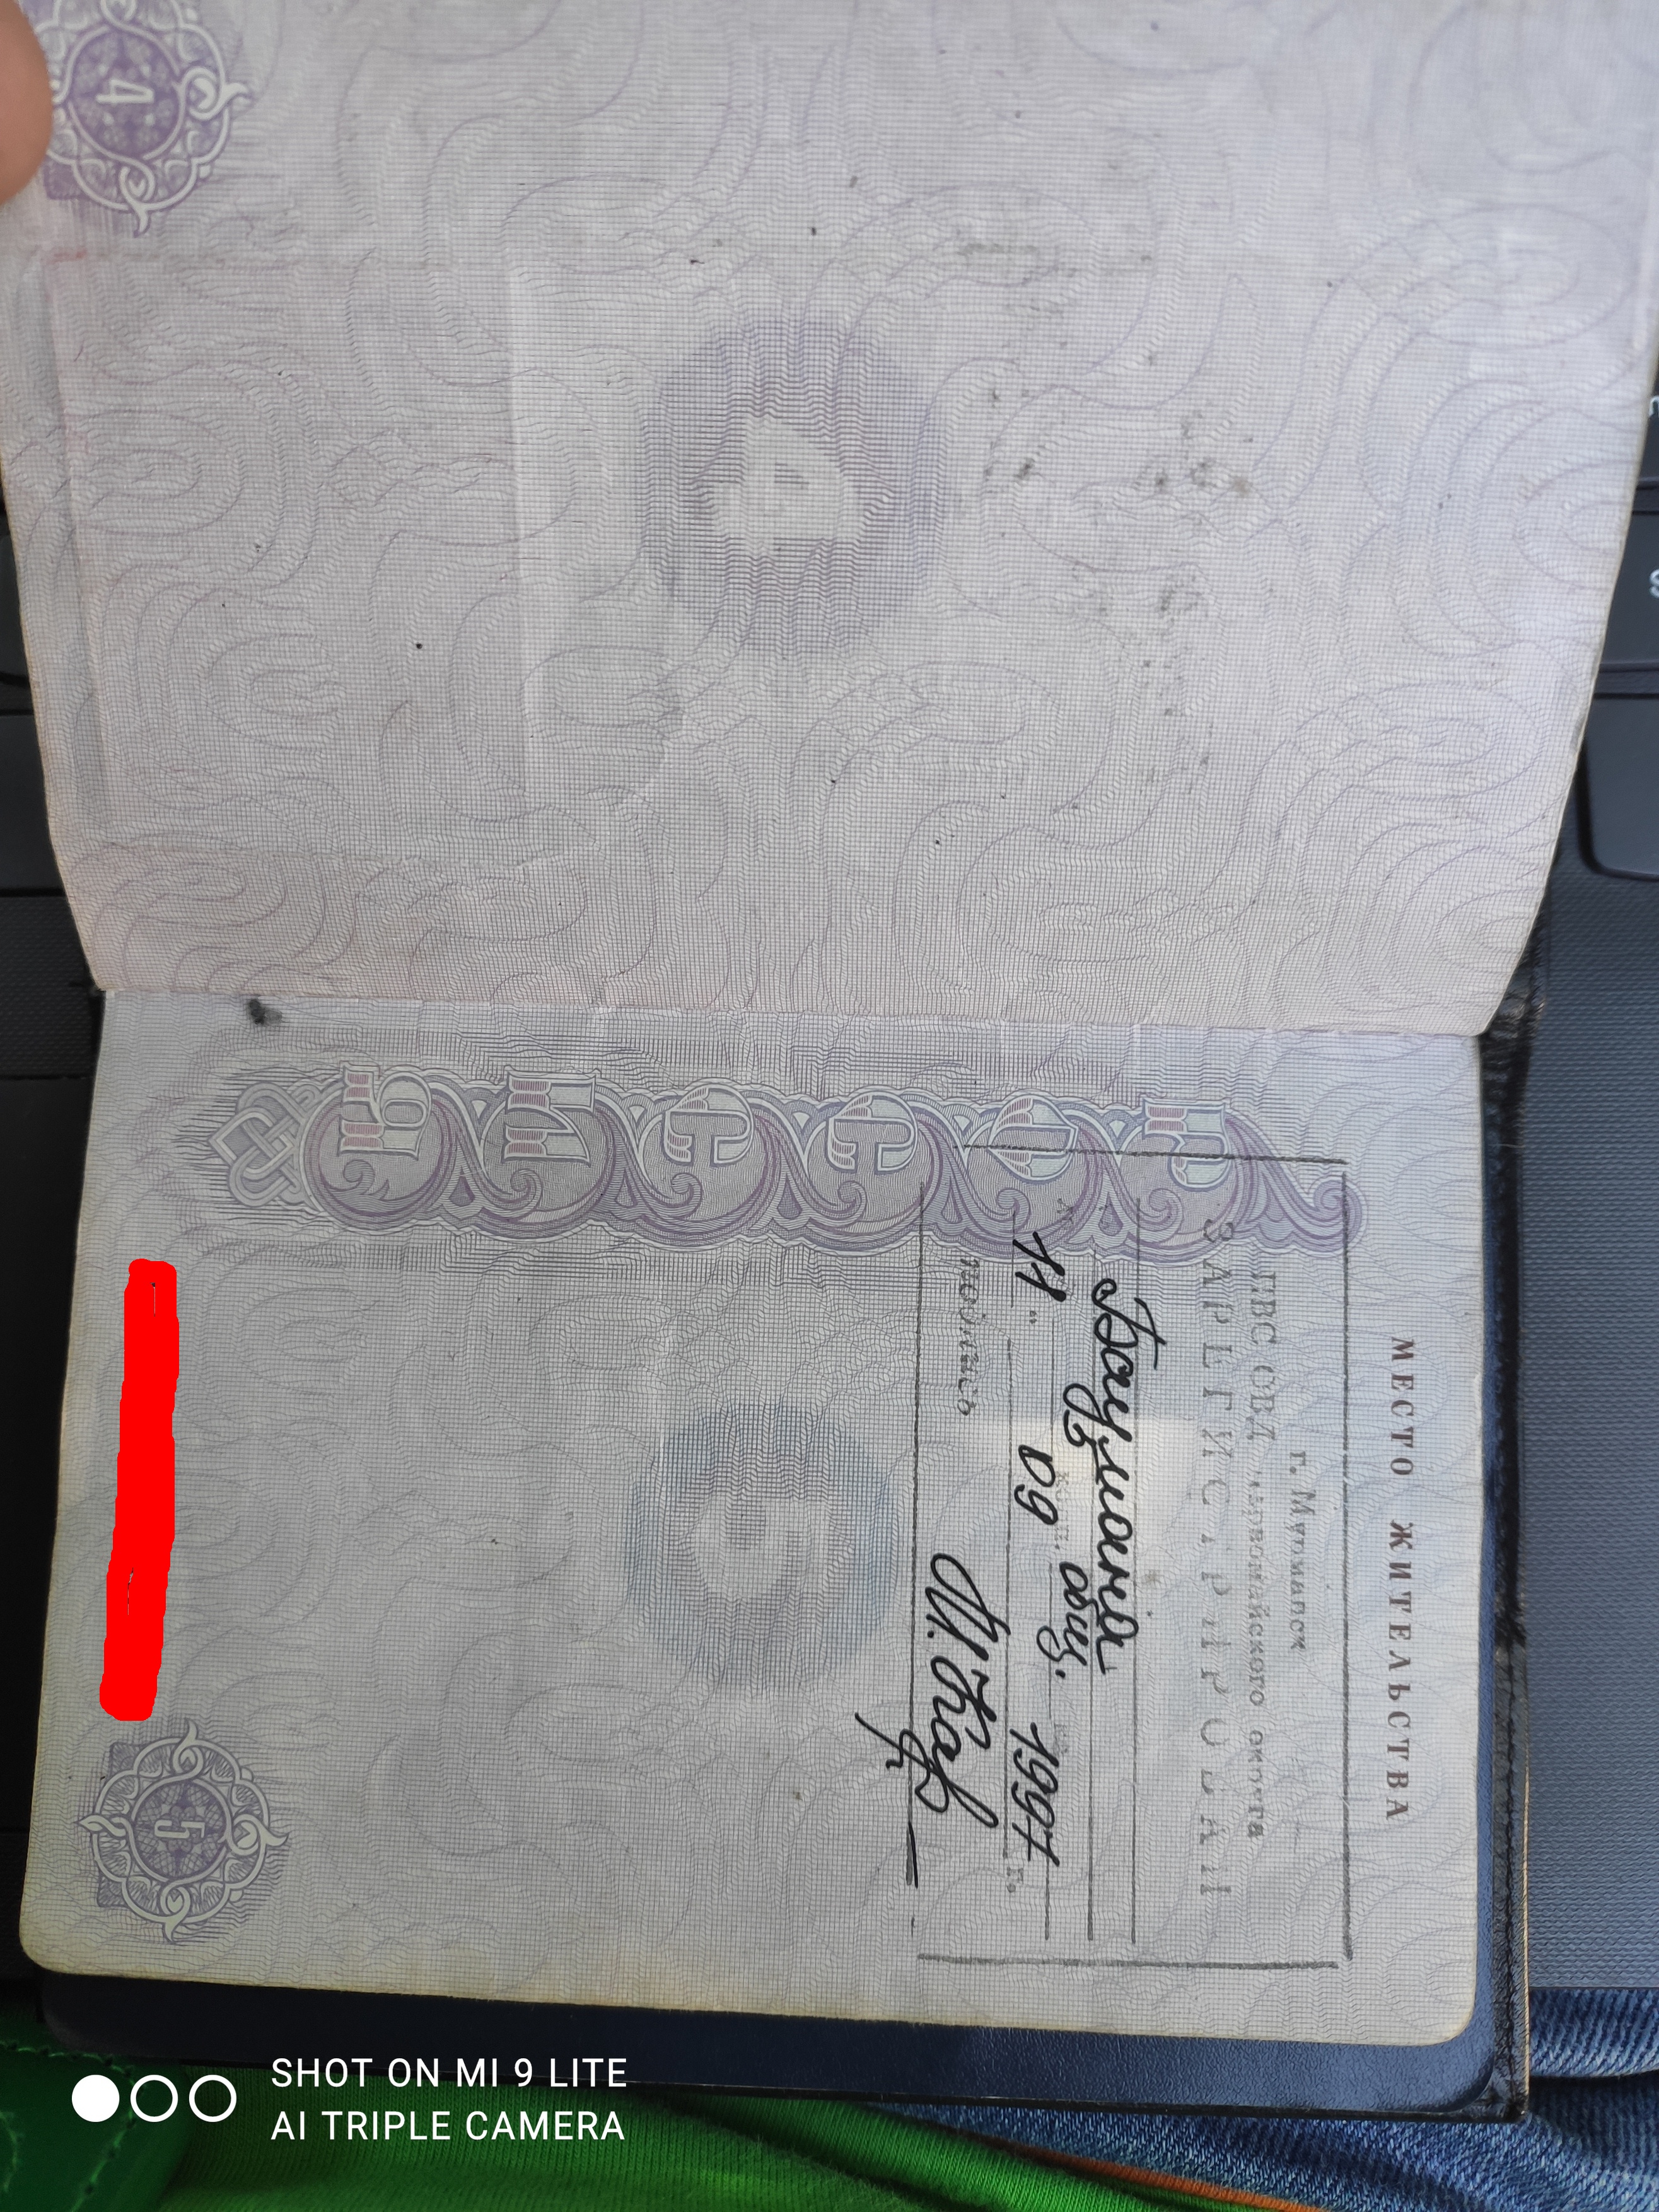 4
МЕСТО ЖИТЕЛЬСТВА
г. Мурманск
ПВС ОВД Первомайского округа
ЗАРЕГИСТРИРОВАН
Баумана
общ.
"11" 09 1997 г.
подпись
РОССИЯ
5
SHOT ON MI 9 LITE
AI TRIPLE CAMERA